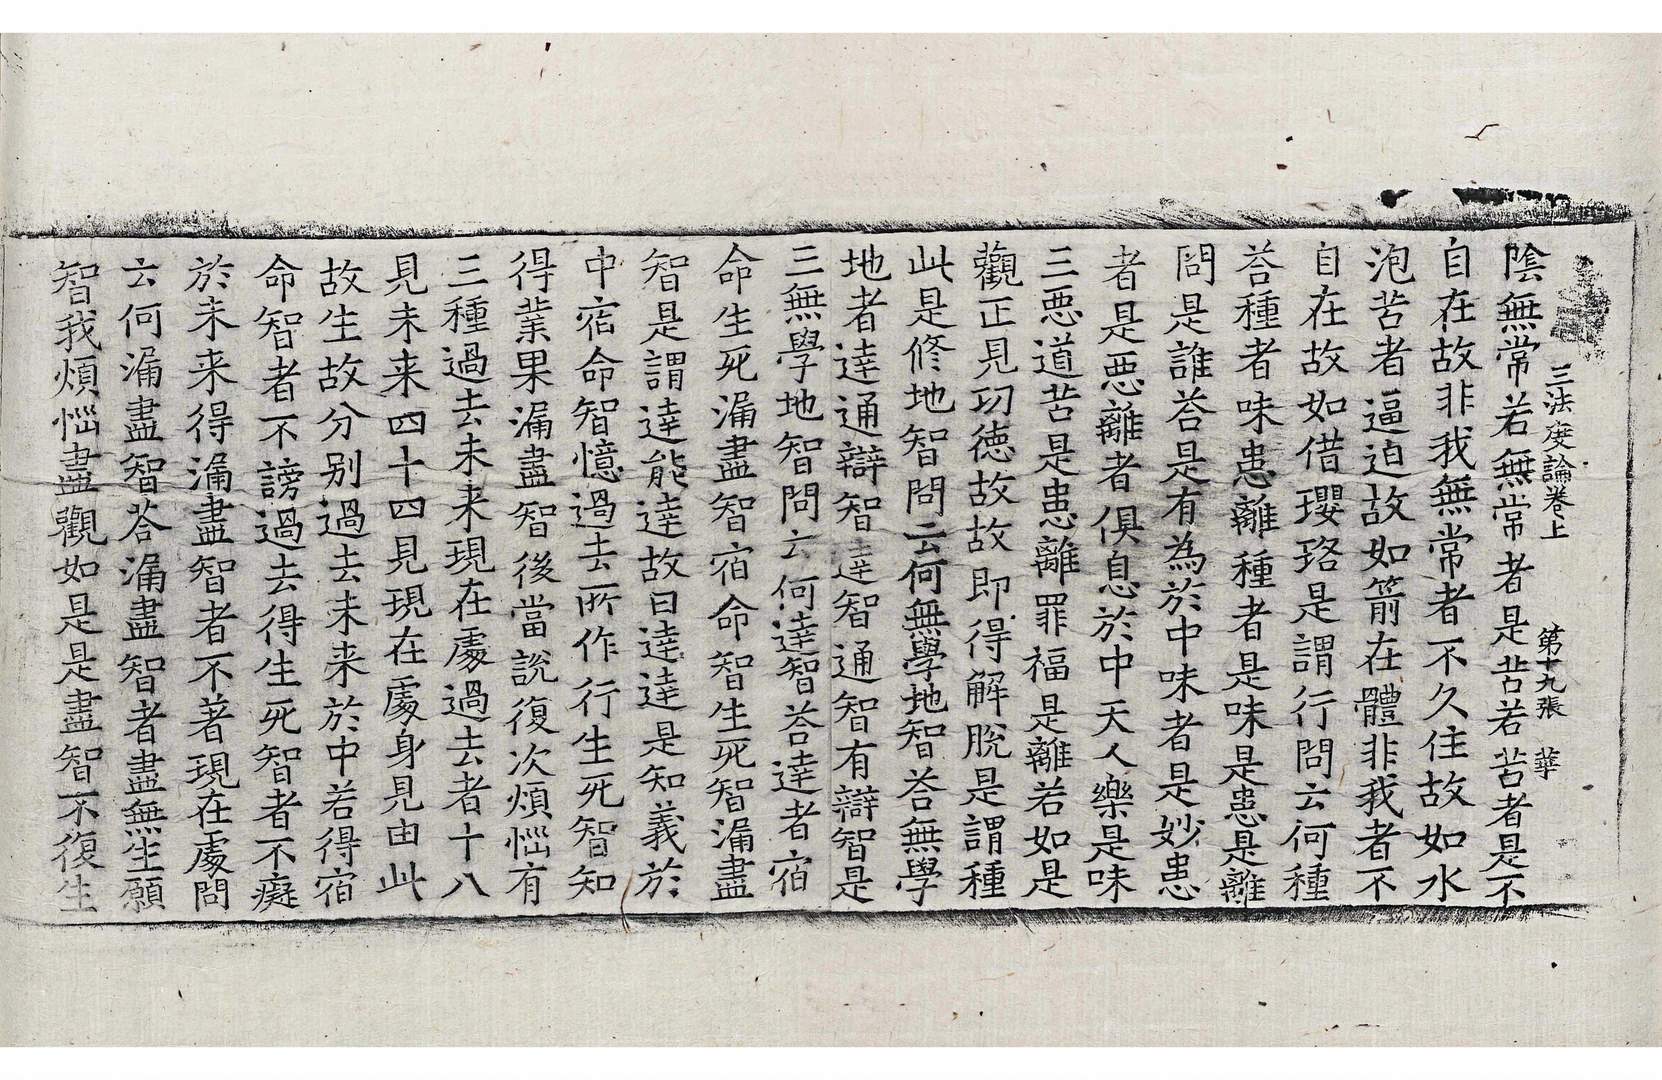 三法度論卷上 第十九張 華
陰無常若無常者是苦若苦者是不
自在故非我無常者不久住故如水
泡苦者逼迫故如箭在體非我者不
自在故如借瓔珞是謂行問云何種
荅種者味患離種者是味是患是離
問是誰荅是有為於中味者是妙患
者是惡離者俱息於中天人樂是味
三惡道苦是患離罪福是離若如是
觀正見功徳故故即得解脫是謂種
此是修地智問云何無學地智荅無學
地者達通辯智達智通智有辯智是
三無學地智問云何達智荅達者宿
命生死漏盡智宿命智生死智漏盡
智是謂達能達故曰達達是知義於
中宿命智憶過去所作行生死智知
得業果漏盡智後當說復次煩惱有
三種過去未来現在處過去者十八
見未来四十四見現在處身見由此
故生故分別過去未来於中若得宿
命智者不謗過去得生死智者不癡
於未来得漏盡智者不著現在處問
云何漏盡智荅漏盡智者盡無生願
智我煩惱盡觀如是是盡智不復生